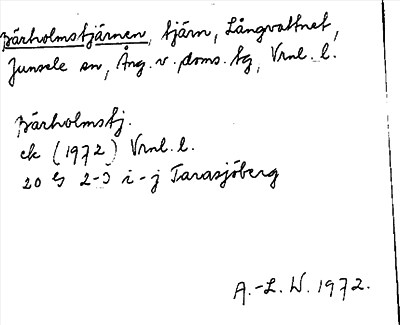 Bärholmstjärnen, tjärn, Långvattnet,
Junsele sn, Ång. v. doms. tg, Vrnl. l.
Bärholmstj.
ek (1972) Vrnl. l.
20 G 2-3 i-j Tarasjöberg
A.-L. W. 1972.